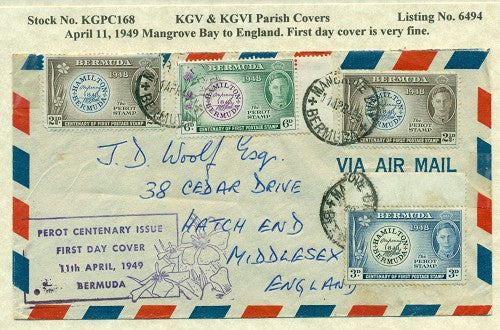 Stock No. KGPC168 KGV & KGVI Parish Covers Listing No. 6494
April 11, 1949 Mangrove Bay to England. First day cover is very fine.
BERMUDA
1948
HAMILTON
BERMUDA
THE
PEROT
STAMP
2½D
CENTENARY OF FIRST POSTAGE STAMP
BERMUDA
1948
HAMILTON
BERMUDA
THE
PEROT
STAMP
6D 6D
CENTENARY OF FIRST POSTAGE STAMP
BERMUDA
1948
HAMILTON
BERMUDA
THE
PEROT
STAMP
2½D
CENTENARY OF FIRST POSTAGE STAMP
MANGROVE
BERMUDA
VIA AIR MAIL
J. D. Woolf Esq.
38 CEDAR DRIVE
HATCH END
MIDDLESEX
ENGLAND
PEROT CENTENARY ISSUE
FIRST DAY COVER
11th APRIL, 1949
BERMUDA
BERMUDA
1948
HAMILTON
BERMUDA
THE
PEROT
STAMP
3D 3D
CENTENARY OF FIRST POSTAGE STAMP